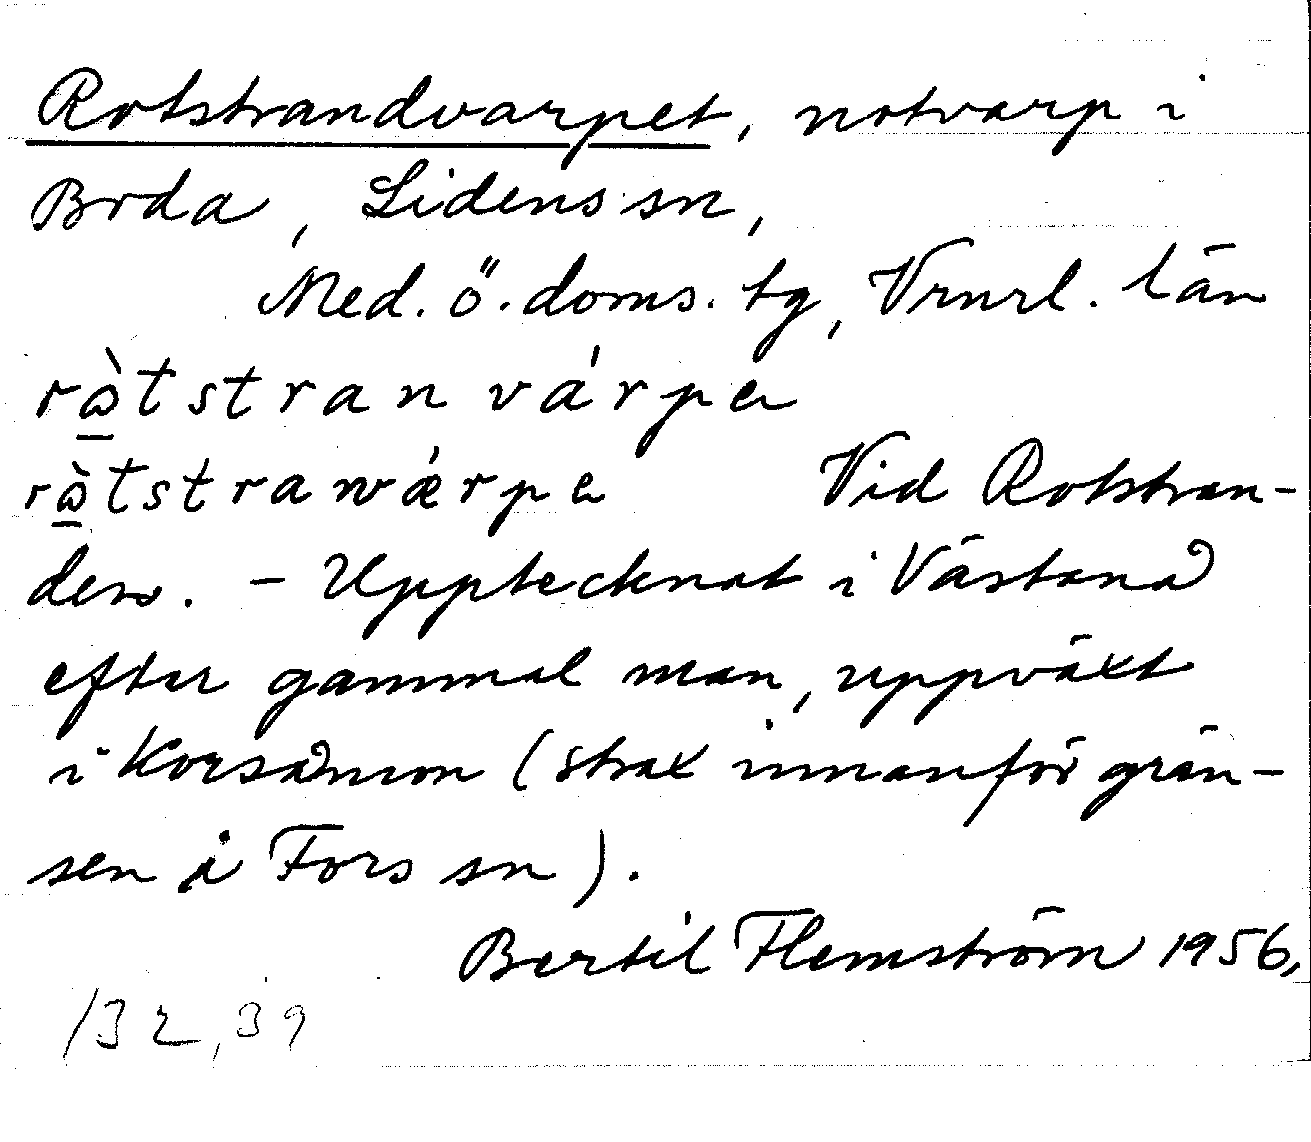 Rotstrandvarpet, notvarp i
Boda, Lidens sn,
Med. ö. doms. tg, Vrnrl. län
rὼ̱tstran várpeɩ
rὼ̱tstrawǽrpe Vid Rotstran-
den. – Upptecknat i Västanå
efter gammal man, uppväxt
i Korsåmon (strax innanför grän-
sen i Fors sn).
Bertil Flemström 1956,
132,39